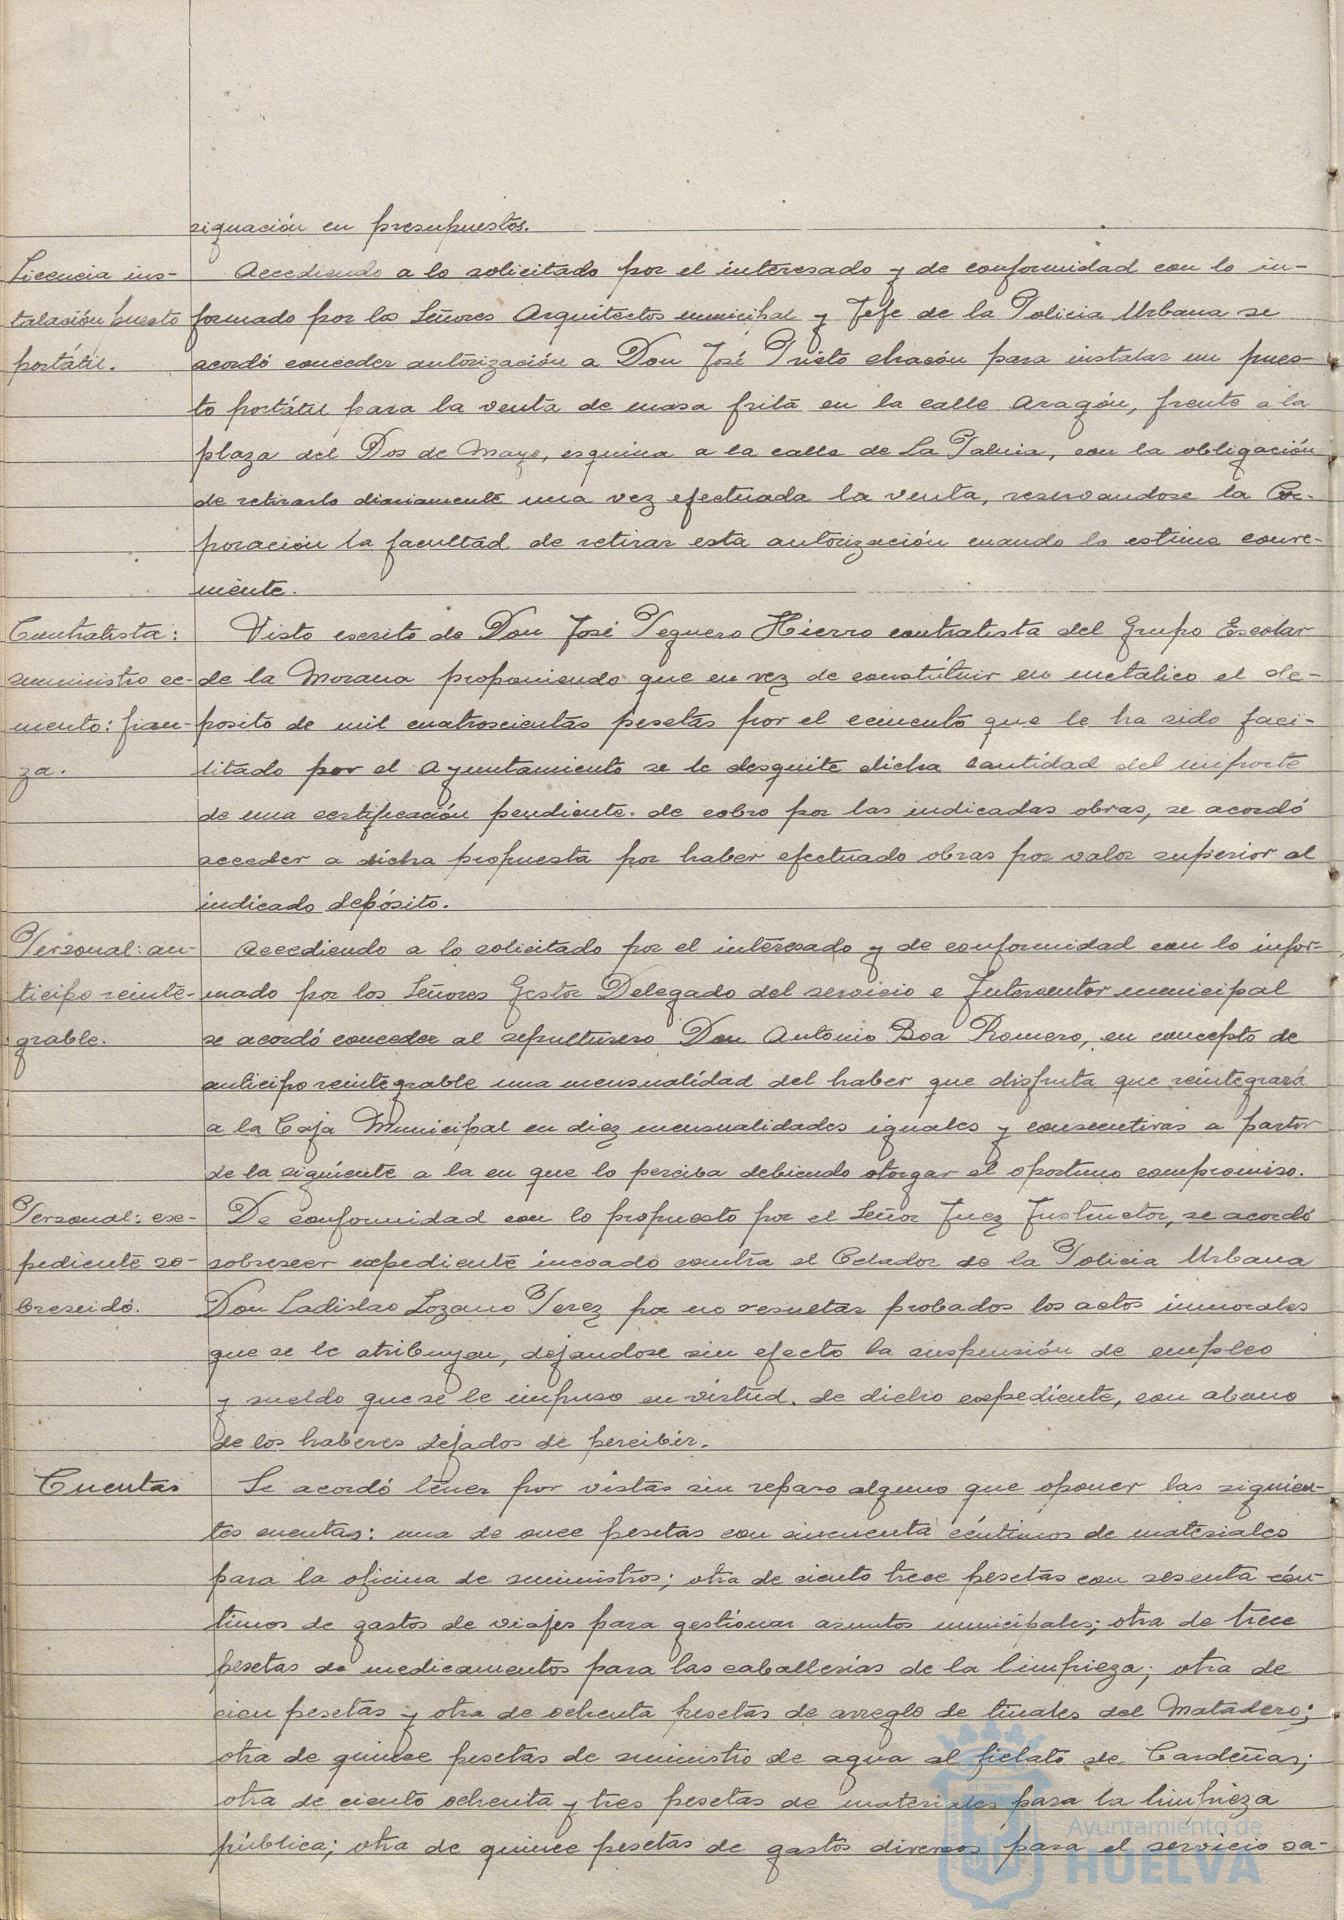 signación en presupuestos.
Licencia ins-
talación puesto
portátil.
Accediendo a lo solicitado por el interesado y de conformidad con lo in-
formado por los Señores Arquitectos municipal y Jefe de la Policia Urbana se
acordó conceder autorización a Don José Prieto chacón para instalar un pues-
to portátil para la venta de masa frita en la calle Aragón, frente a la
plaza del Dos de Mayo, esquina a la calle de La Palma, con la obligación
de retirarlo diariamente una vez efectuada la venta, reservandose la Cor-
poración la facultad de retirar esta autorización cuando lo estime conve-
niente.
Contratista:
suministro ce-
mento: fian-
za.
Visto escrito de Don José Peguero Hierro contratista del Grupo Escolar
de la Morana proponiendo que en vez de constituir en metalico el de-
posito de mil cuatroscientas pesetas por el cemento que le ha sido faci-
litado por el Ayuntamiento se le desquite dicha cantidad del importe
de una certificación pendiente. de cobro por las indicadas obras, se acordó
acceder a dicha propuesta por haber efectuado obras por valor superior al
indicado depósito.
Personal: an-
ticipo reinte-
grable.
Accediendo a lo solicitado por el interesado y de conformidad con lo infor-
mado por los Señores Gestor Delegado del servicio e Interventor municipal
se acordó conceder al sepulturero Don Antonio Boa Romero, en concepto de
anticipo reintegrable una mensualidad del haber que disfruta que reintegrará
a la Caja Municipal en diez mensualidades iguales y consecutivas a partir
de la siguiente a la en que lo perciba debiendo otorgar el oportuno compromiso.
Personal: exe-
pediente so-
breseido.
De conformidad con lo propuesto por el Señor Juez Instructor, se acordó
sobreseer expediente incoado contra el Celador de la Policia Urbana
Don Ladislao Lozano Perez por no resultar probados los actos inmorales
que se le atribuyen, dejandose sin efecto la suspensión de empleo
y sueldo que se le impuso en virtud. de dicho expediente, con abono
de los haberes dejados de percibir.
Cuentas
Se acordó tener por vistas sin reparo alguno que oponer las siguien-
tes cuentas: una de once pesetas con cincuenta céntimos de materiales
para la oficina de suministros; otra de ciento trece pesetas con sesenta cén-
timos de gastos de viajes para gestionar asuntos municipales; otra de trece
pesetas de medicamentos para las caballerías de la limpieza; otra de
cien pesetas y otra de ochenta pesetas de arreglo de tinales del Matadero;
otra de quince pesetas de suministro de agua al fielato de Cardeñas;
otra de ciento ochenta y tres pesetas de materiales para la limpieza
pública; otra de quince pesetas de gastos diversos para el servicio sa-
Ayuntamiento de
HUELVA